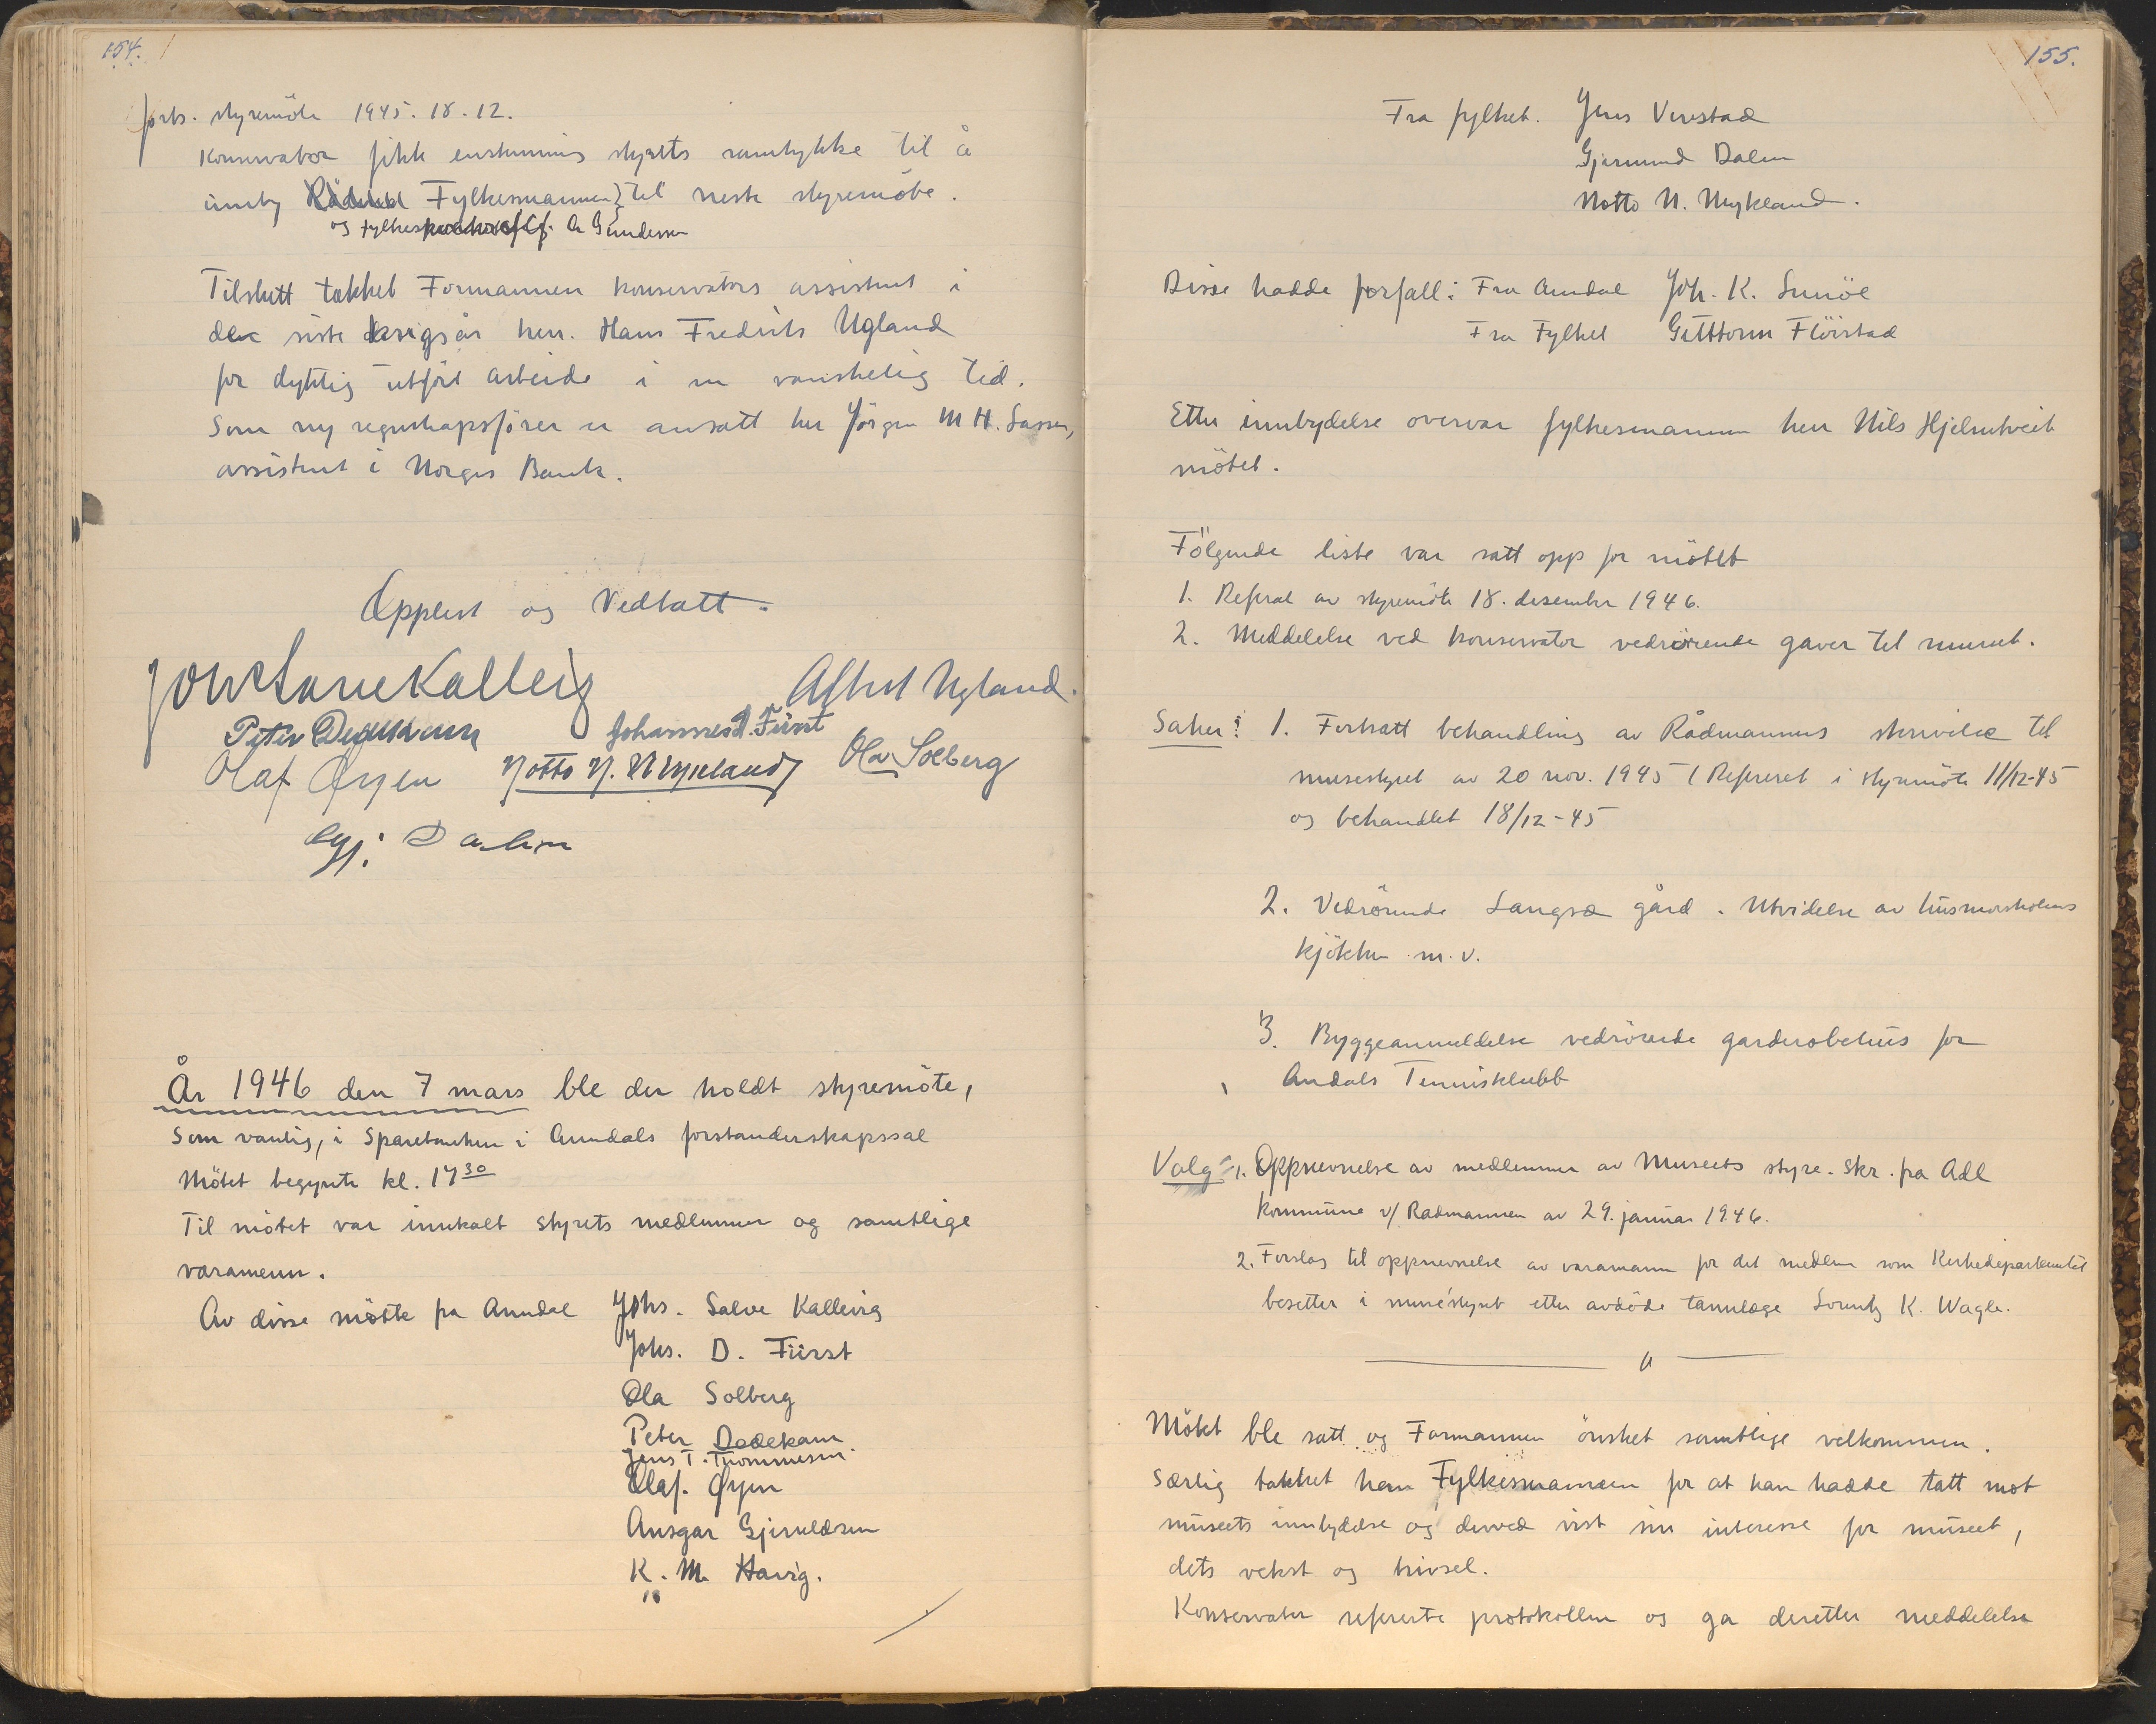 154.
forts. styremöte 1945. 18. 12.
Konservator fikk enstemmig styrets samtykke til å
innby Fylkesmannen til neste styremöte.
og Fylkes A Gundersen
Tilslutt takket Formannen konservators assistent i
de siste krigsår herr. Hans Fredrik Ugland
for dyktig utfört arbeide i en vanskelig tid.
Som ny regnskapsförer er ansatt herr Jörgen M H. Sassen,
assistent i Norges Bank.
Opplest og Vedtatt.
Johs Salve Kallevig
Alfred Ugland.
Peter Dedekam
Johannes D. Fürst
Olaf Øyen
Notto N. Mykland
Ola Solberg
Gj. Dalen
År 1946 den 7 mars ble der holdt styremöte,
Som vanlig, i Sparebanken i Arendals forstanderskapssal
Mötet begynte kl. 17 30
Til mötet var innkalt styrets medlemmer og samtlige
varamenn.
Av disse mötte fra Arendal Johs. Salve Kallevig
Johs. D. Fürst
Ola Solberg
Peter Dedekam
Jens T. Thommesen
Olaf. Øyen
Ansgar Gjeruldsen
K. M. Havig.
155.
Fra fylket. Jens Verestad
Gjermund Dalen
Notto N. Mykland.
Disse hadde forfall: Fra Arendal Joh. K.
Fra Fylket Guttorm Flöistad
Etter innbydelse overvar fylkesmannen herr Nils Hjelmtveit
mötet.
Fölgende liste var satt opp for mötet
1. Referat av styremöte 18. desember 1946.
2. Meddelelse ved konservator vedrörende gaver til museet.
Saker: 1. Fortsatt behandling av Rådmannens skrivelse til
musestyret av 20 nov. 1945 (Referert i styremöte 11/12-45
og behandlet 18/12-45
2. Vedrörende Langsæ gård. Utvidelse av husmorskolens
kjökken m.v.
3. Byggeanmeldelse vedrörende garderobehus for
Arendals Tennisklubb
Valg: 1. Oppnevnelse av medlemmer av Museets styre. Skr. fra Adl
Kommune v/ Radmannen av 29. januar 1946.
2. Forslag til oppnevnelse av varamann for det medlem som Kirkedepartementet
besetter i musestyret etter avdöde tannlæge Lorentz K. Wagle.
Mötet ble satt og Formannen önsket samtlige velkommen.
Særlig takket han Fylkesmannen for at han hadde tatt mot
museets innbydelse og derved vist sin interesse for museet,
dets vekst og trivsel.
Konservator refererte protokollen og ga deretter meddelelse